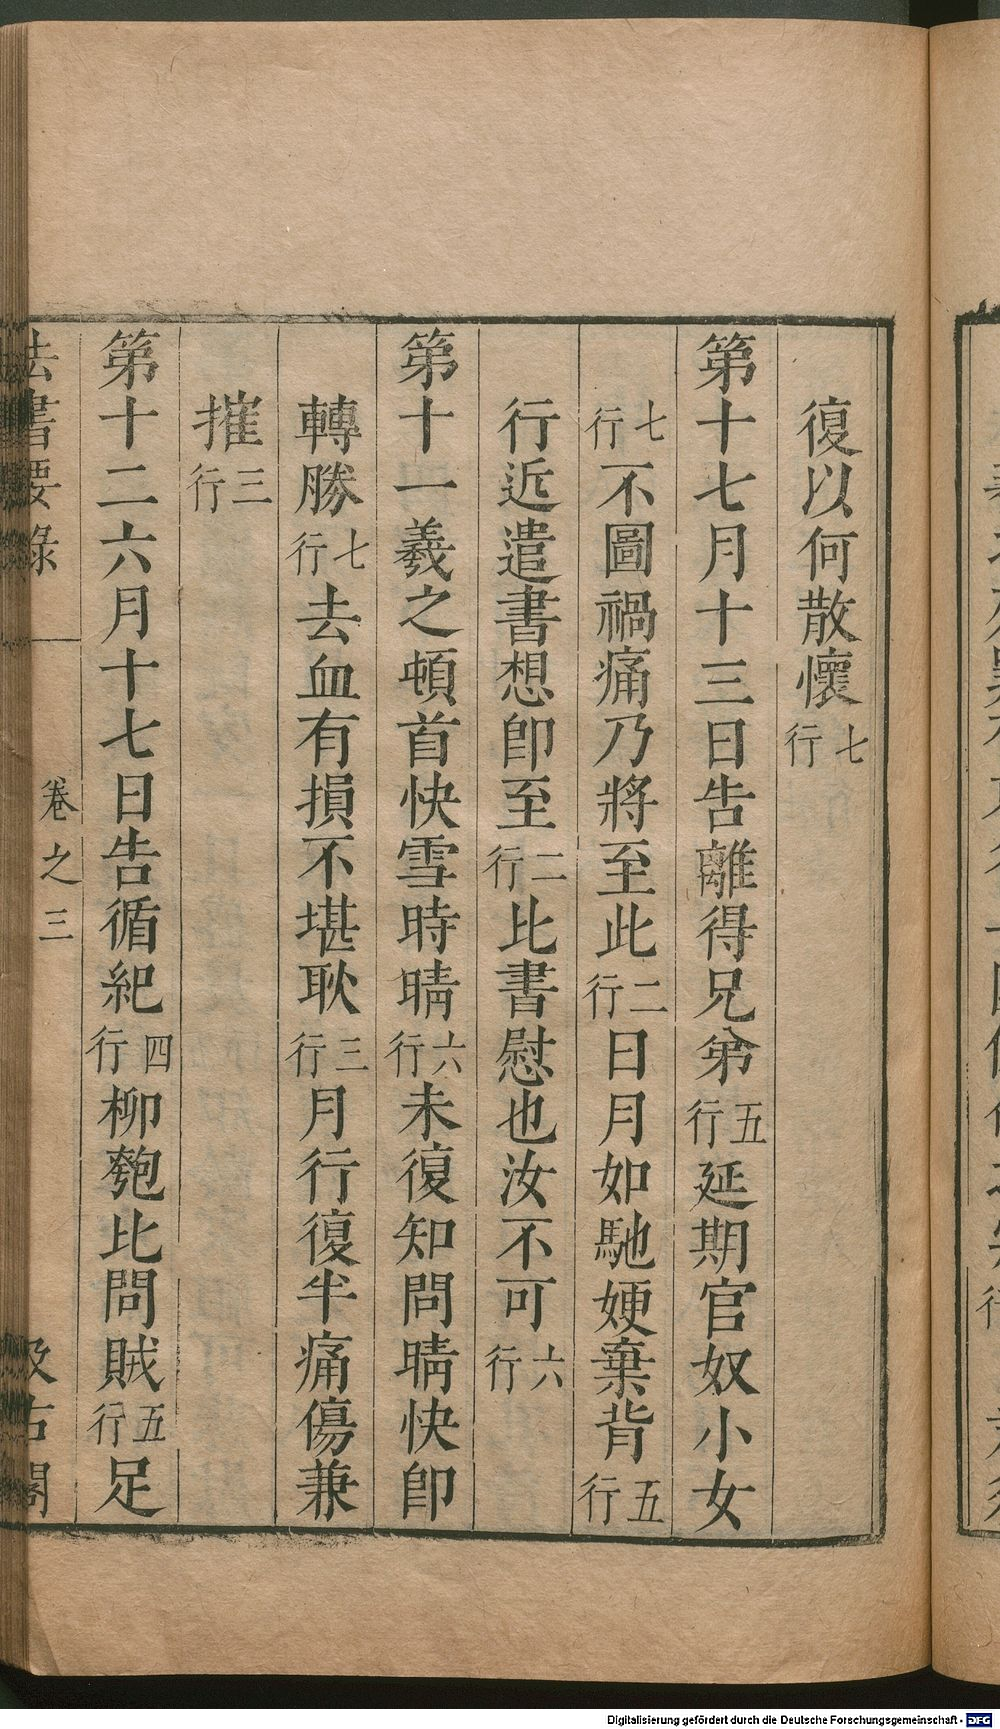 復以何散懷七行
第十七月十三日告離得兄弟五行延期官奴小女
七行不圖禍痛乃將至此二行日月如馳㛐棄背五行
行近遣書想卽至二行比書慰也汝不可六行
第十一羲之頓首快雪時晴六行未復知問晴快卽
轉勝七行去血有損不堪耿三行月行復半痛傷兼
摧三行
第十二六月十七日告循紀四行柳匏比問賊五行足
法書要錄 卷之三 汲古閣
Digitalisierung gefördert durch die Deutsche Forschungsgemeinschaft - DFG